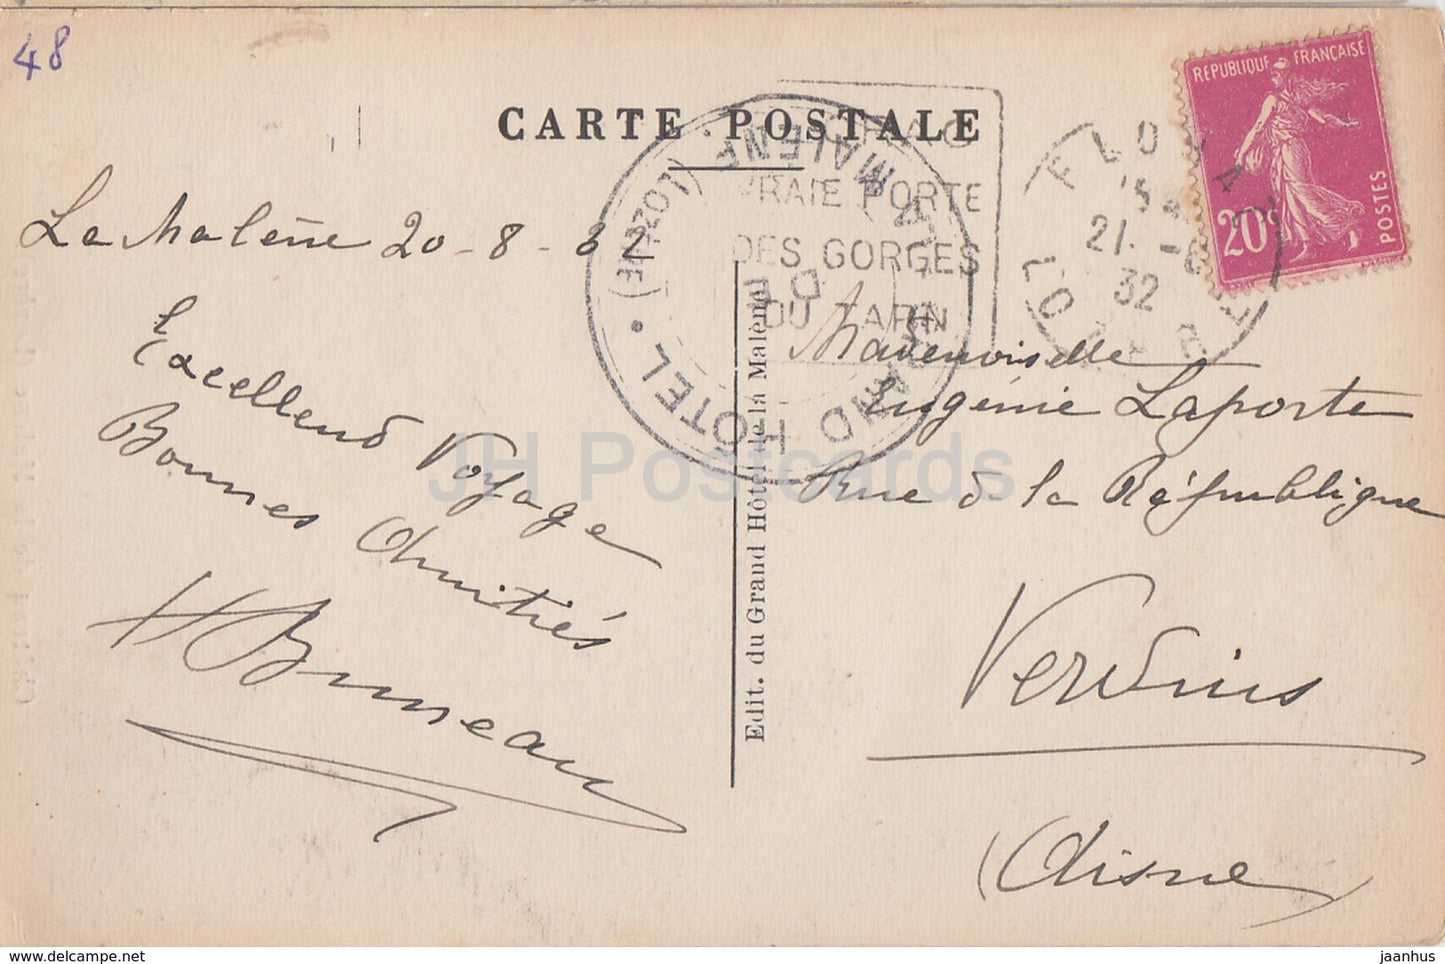 48
CARTE POSTALE
RÉPUBLIQUE FRANÇAISE
20c
POSTES
FLORAC
21 -8
32
LOZERE
VRAIE PORTE
DES GORGES
DU TARN
GRAND HÔTEL DE LA MALÈNE (LOZÈRE)
La Malène 20-8-32
Excellent Voyage
Bonnes Amitiés
H Bruneau
Edit. du Grand Hôtel de la Malène
Mademoiselle
Eugénie Laporte
Rue de la République
Vervins
(Aisne)
JH Postcards
HipPostcard.com
jaanhus